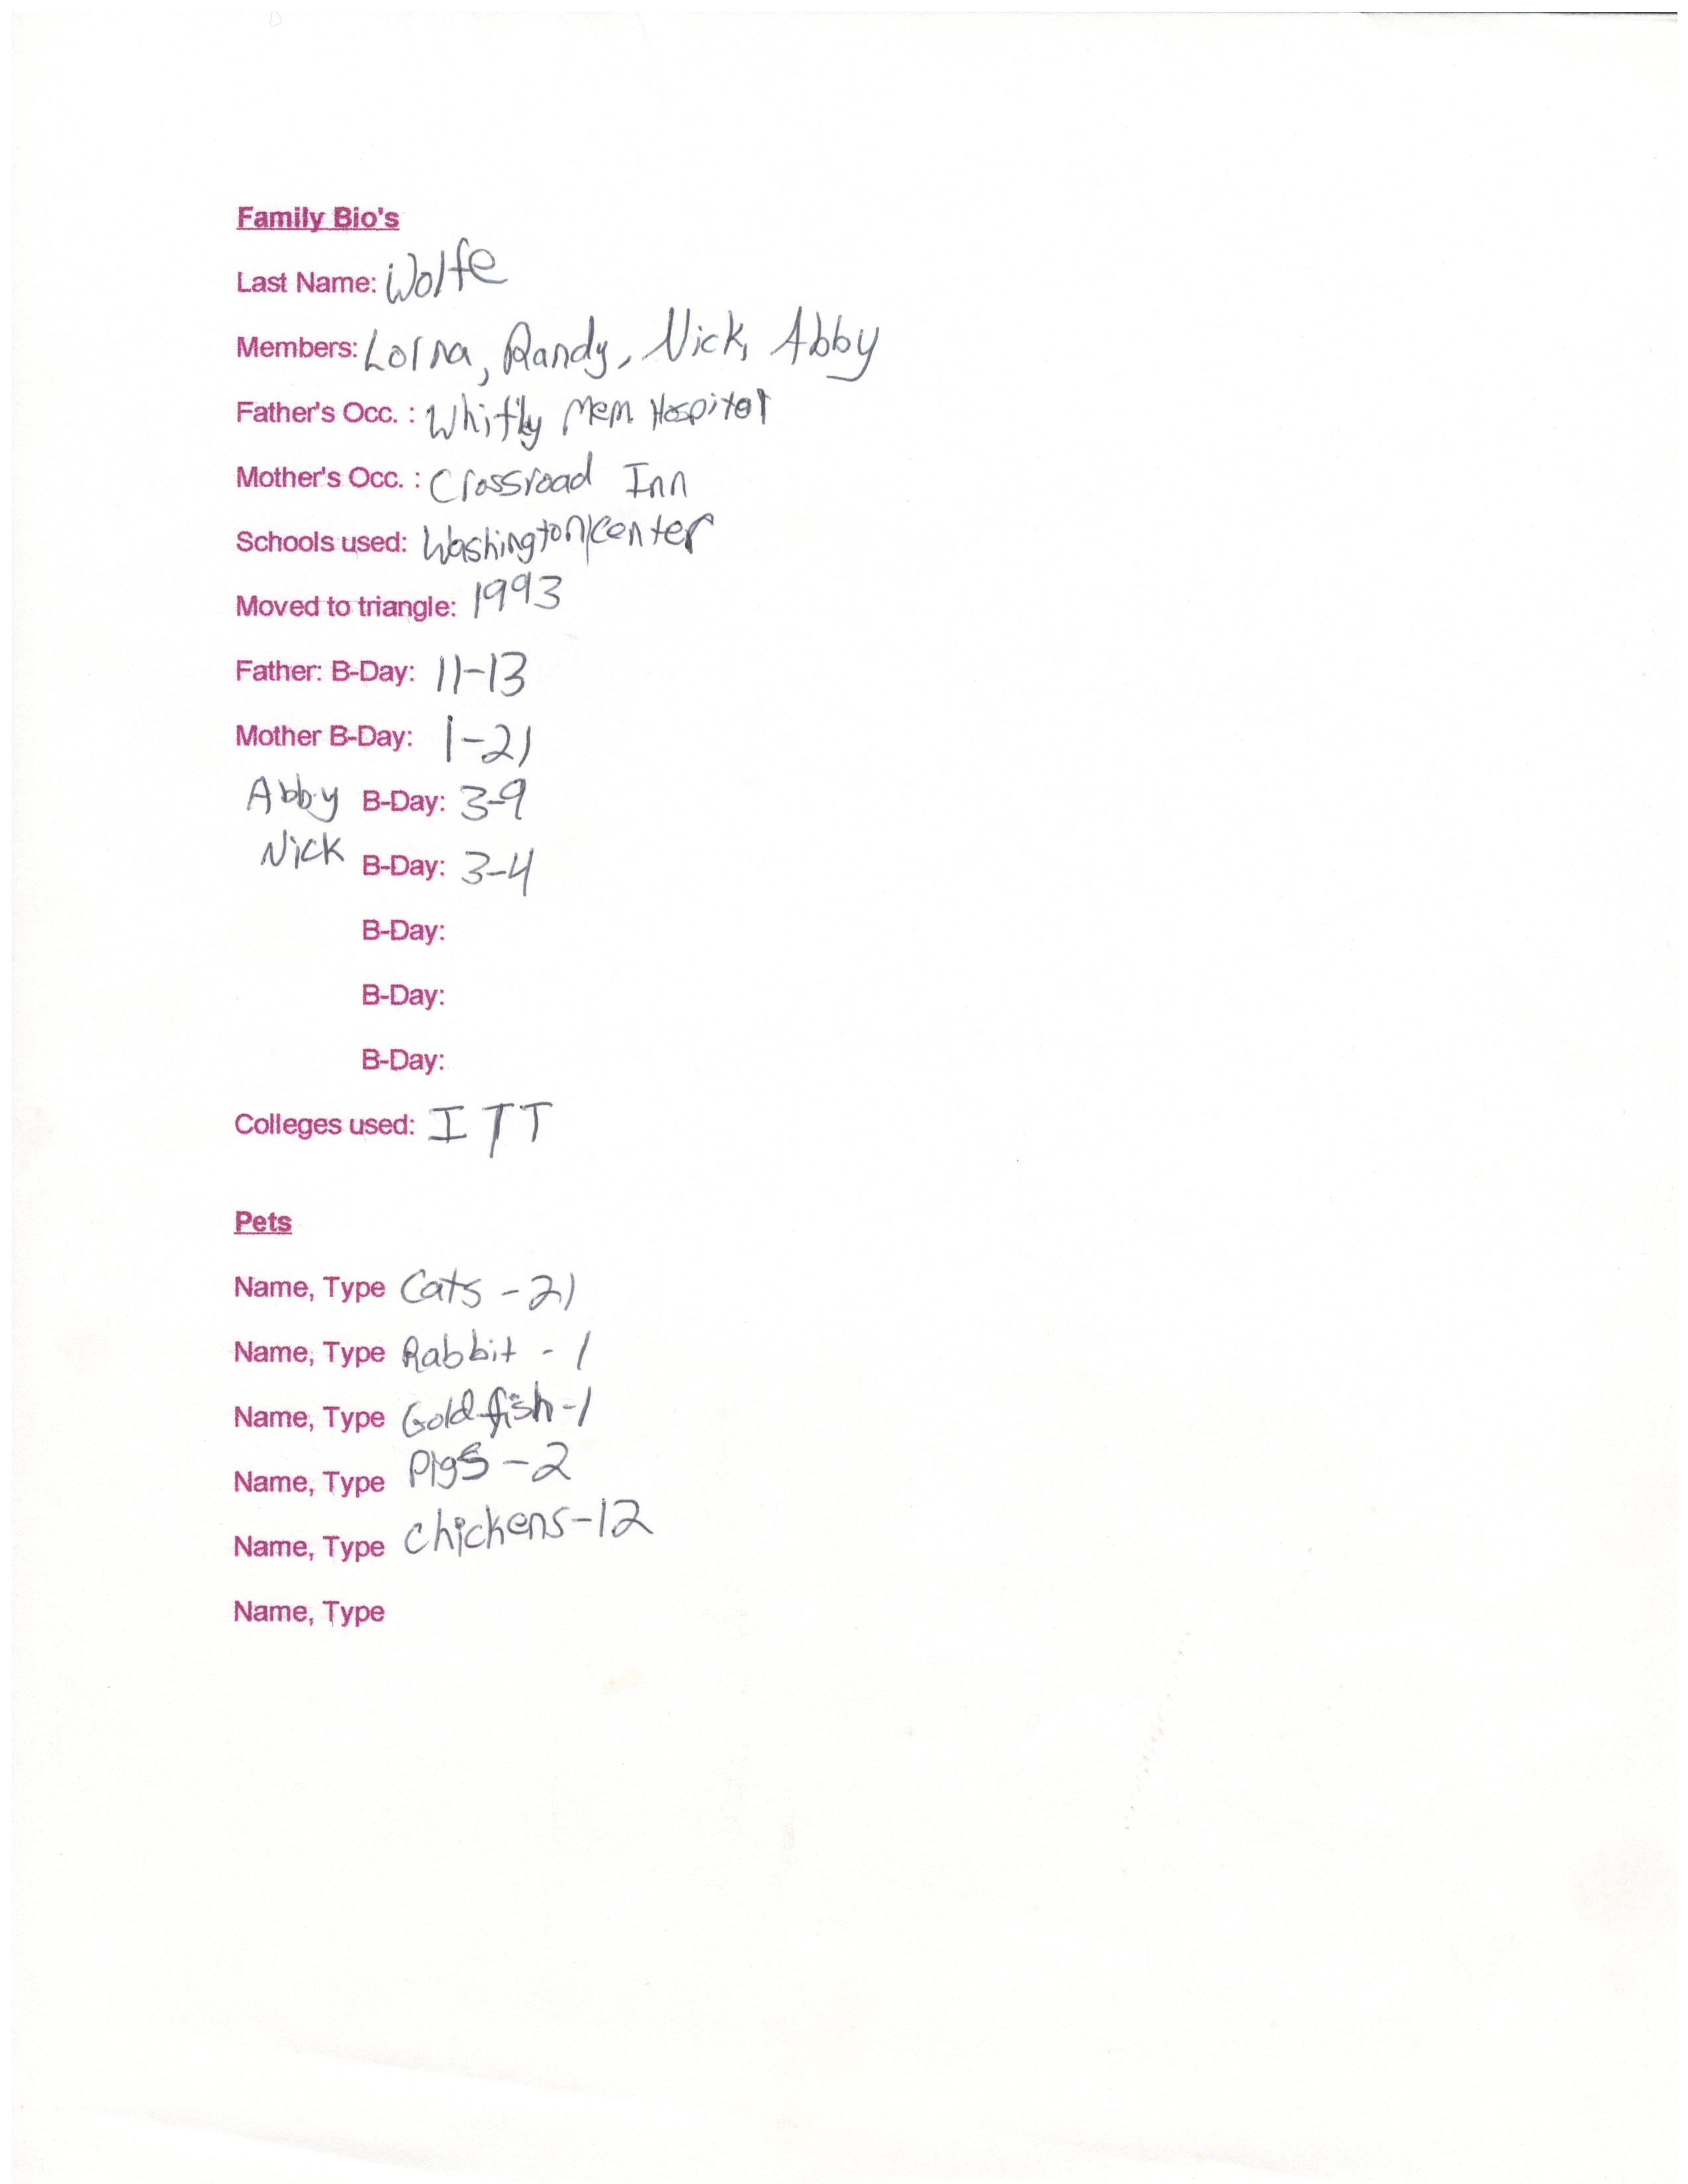 Family Bio's
Last Name: Wolfe
Members: Lorna, Randy, Nick, Abby
Father's Occ. : Whitly Mem Hospital
Mother's Occ. : Crossroad Inn
Schools used: Washington/center
Moved to triangle: 1993
Father: B-Day: 11-13
Mother B-Day: 1-21
Abby B-Day: 3-9
Nick B-Day: 3-4
B-Day:
B-Day:
B-Day:
Colleges used: ITT
Pets
Name, Type Cats - 21
Name, Type Rabbit - 1
Name, Type Gold fish - 1
Name, Type Pigs - 2
Name, Type chickens - 12
Name, Type